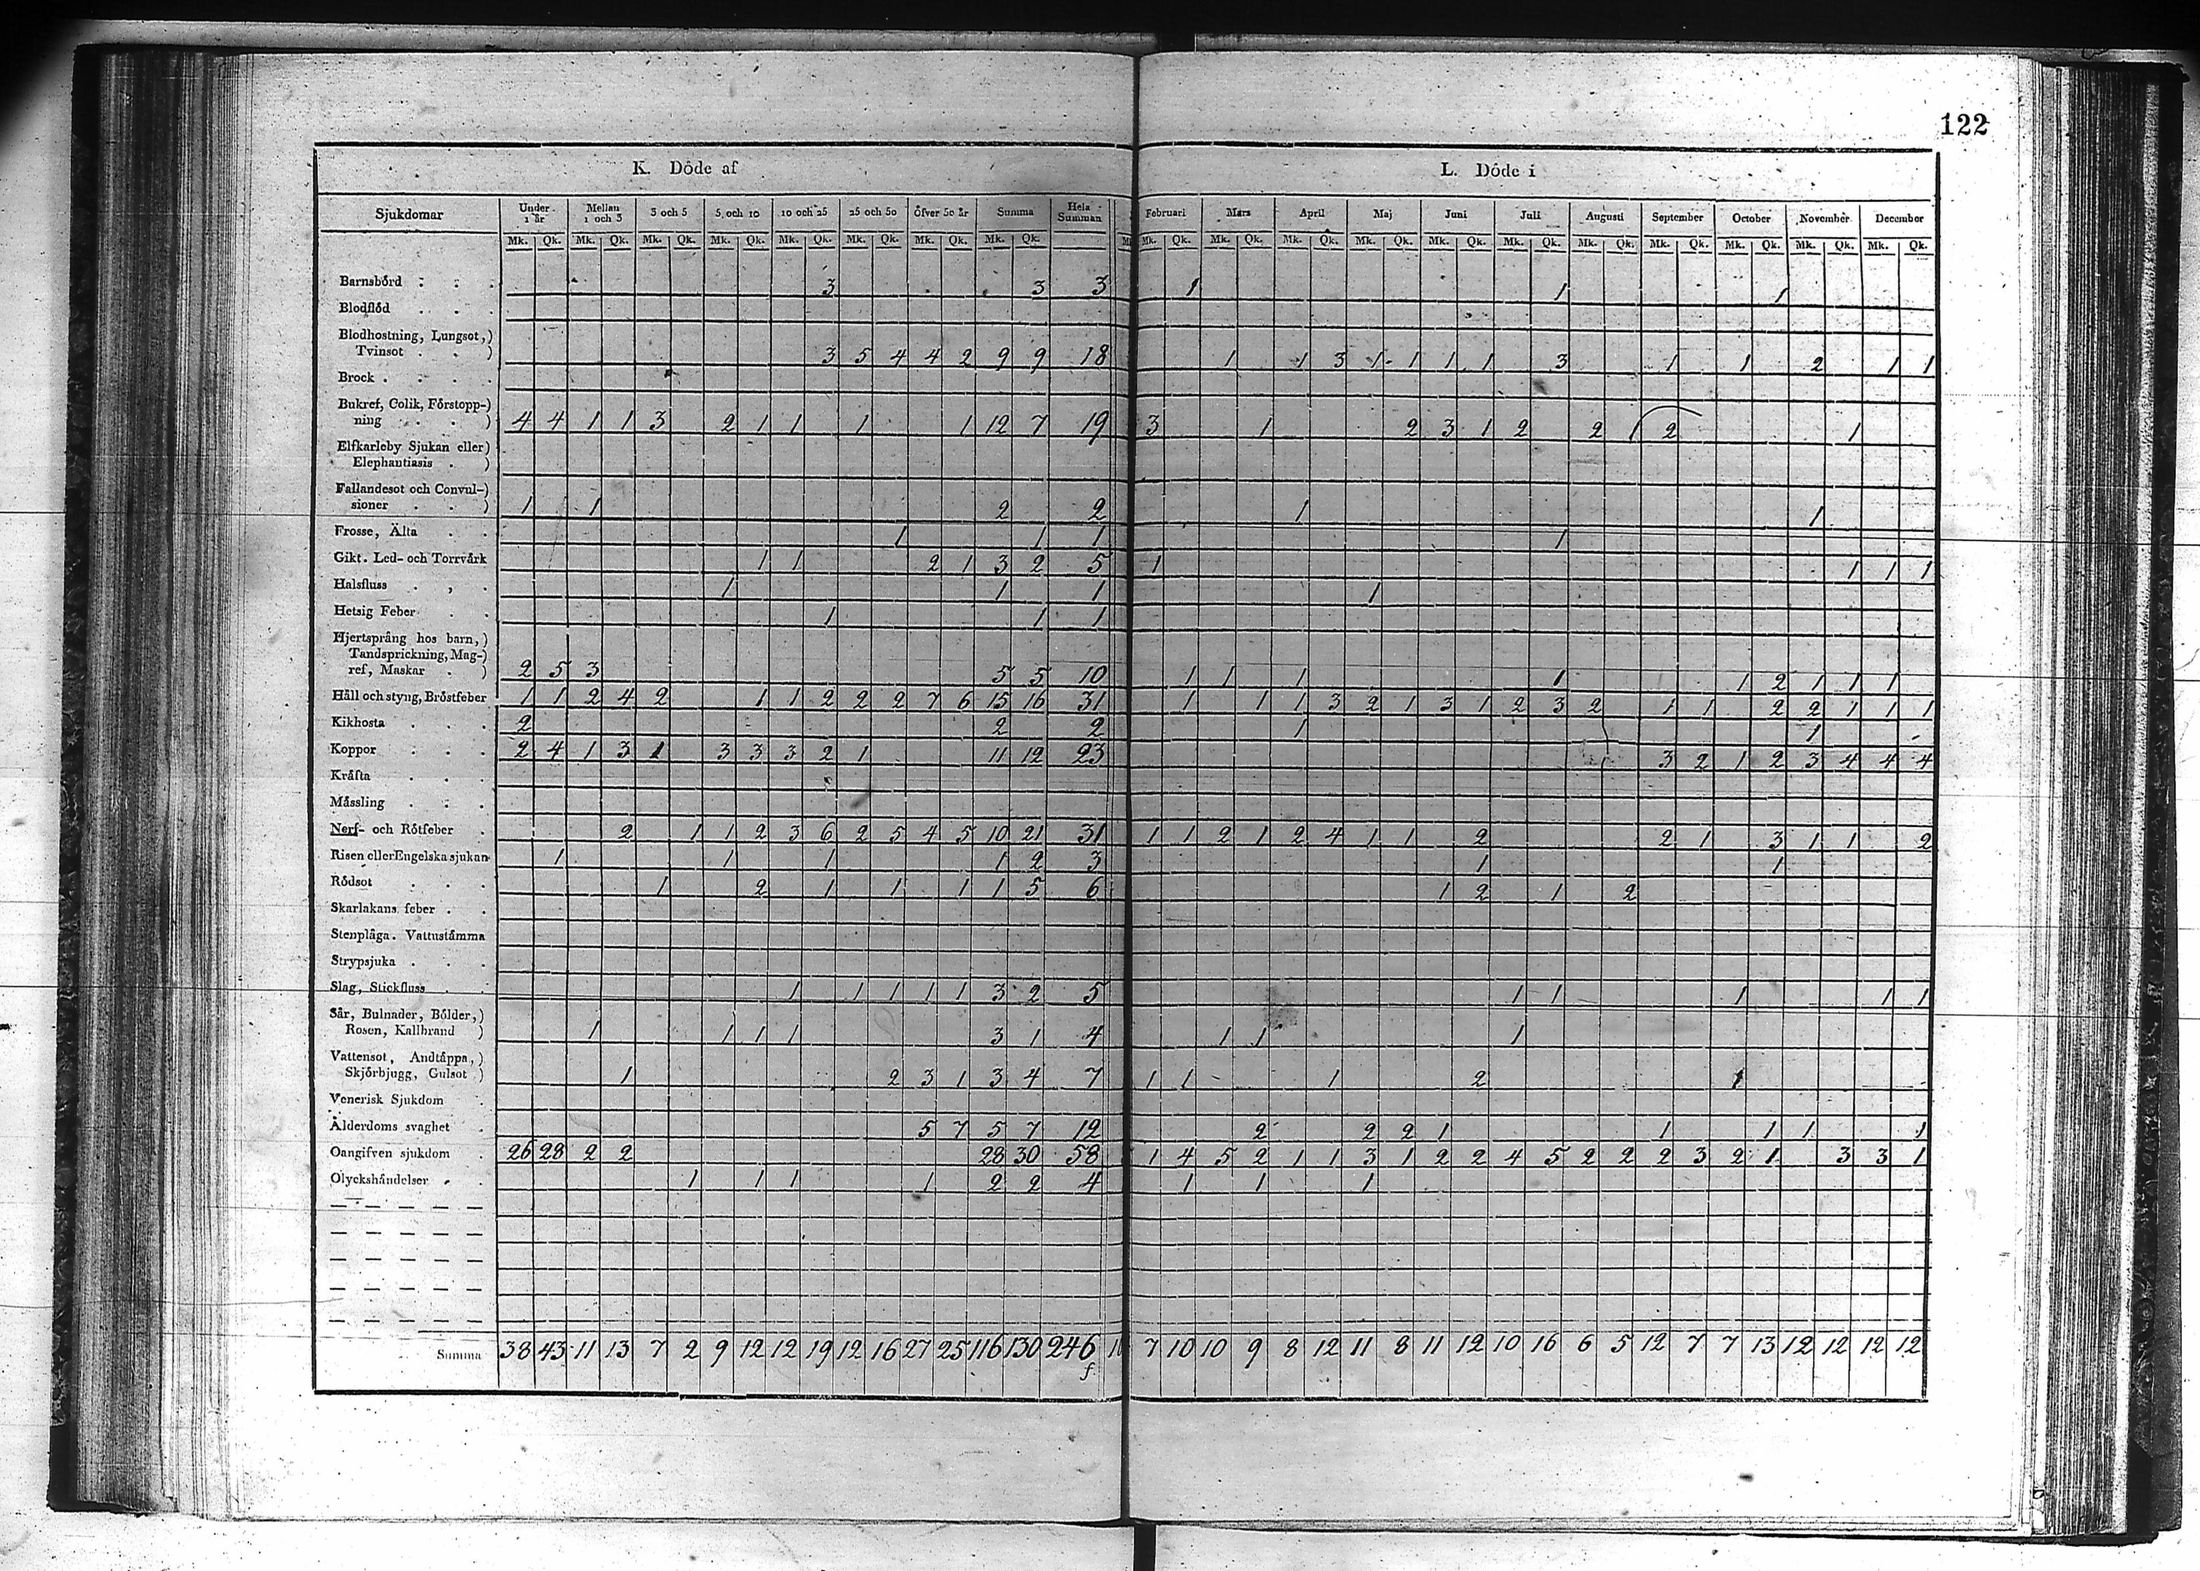 122
K. Döde af L. Döde i
Sjukdomar Under 1 år Mellan 1 och 3 3 och 5 5 och 10 10 och 25 25 och 50 Öfver 50 år Summa Hela Summan Februari Mars April Maj Juni Juli Augusti September October November December
Mk. Qk. Mk. Qk. Mk. Qk. Mk. Qk. Mk. Qk. Mk. Qk. Mk. Qk. Mk. Qk. Mk. Qk. Mk. Qk. Mk. Qk. Mk. Qk. Mk. Qk. Mk. Qk. Mk. Qk. Mk. Qk. Mk. Qk. Mk. Qk. Mk. Qk.
Barnsbörd 3 3 3 1 1 1
Blodflöd
Blodhostning, Lungsot,)
Tvinsot ) 3 5 4 4 2 9 9 18 1 1 3 1 1 1 1 3 1 1 2 1 1
Brock
Bukref, Colik, Förstopp-)
ning ) 4 4 1 1 3 2 1 1 1 1 12 7 19 3 1 2 3 1 2 2 1 2 1
Elfkarleby Sjukan eller)
Elephantiasis )
Fallandesot och Convul-)
sioner ) 1 1 2 2 1 1
Frosse, Älta 1 1 1 1
Gikt. Led- och Torrvärk 1 1 2 1 3 2 5 1 1 1 1
Halsfluss 1 1 1 1
Hetsig Feber 1 1 1
Hjertsprång hos barn,)
Tandsprickning, Mag-)
ref, Maskar ) 2 5 3 5 5 10 1 1 1 1 1 2 1 1 1
Håll och styng, Bröstfeber 1 1 2 4 2 1 1 2 2 2 7 6 15 16 31 1 1 1 3 2 1 3 1 2 3 2 1 1 2 2 1 1 1
Kikhosta 2 2 2 1 1
Koppor 2 4 1 3 1 3 3 3 2 1 11 12 23 3 2 1 2 3 4 4 4
Kräfta
Mässling
Nerf- och Rötfeber 2 1 1 2 3 6 2 5 4 5 10 21 31 1 1 2 1 2 4 1 1 2 2 1 3 1 1 2
Risen eller Engelska sjukan 1 1 1 1 2 3 1 1
Rödsot 1 2 1 1 1 1 5 6 1 2 1 2
Skarlakans feber
Stenplåga. Vattustämma
Strypsjuka
Slag, Stickfluss 1 1 1 1 1 3 2 5 1 1 1 1 1
Sår, Bulnader, Bölder,)
Rosen, Kallbrand ) 1 1 1 1 3 1 4 1 1 1
Vattensot, Andtäppa,)
Skjörbjugg, Gulsot ) 1 2 3 1 3 4 7 1 1 1 2 1
Venerisk Sjukdom
Ålderdoms svaghet 5 7 5 7 12 2 2 2 1 1 1 1 1
Oangifven sjukdom 26 28 2 2 28 30 58 1 4 5 2 1 1 3 1 2 2 4 5 2 2 2 3 2 1 3 3 1
Olyckshändelser 1 1 1 1 2 2 4 1 1 1
Summa 38 43 11 13 7 2 9 12 12 19 12 16 27 25 116 130 246 7 10 10 9 8 12 11 8 11 12 10 16 6 5 12 7 7 13 12 12 12 12